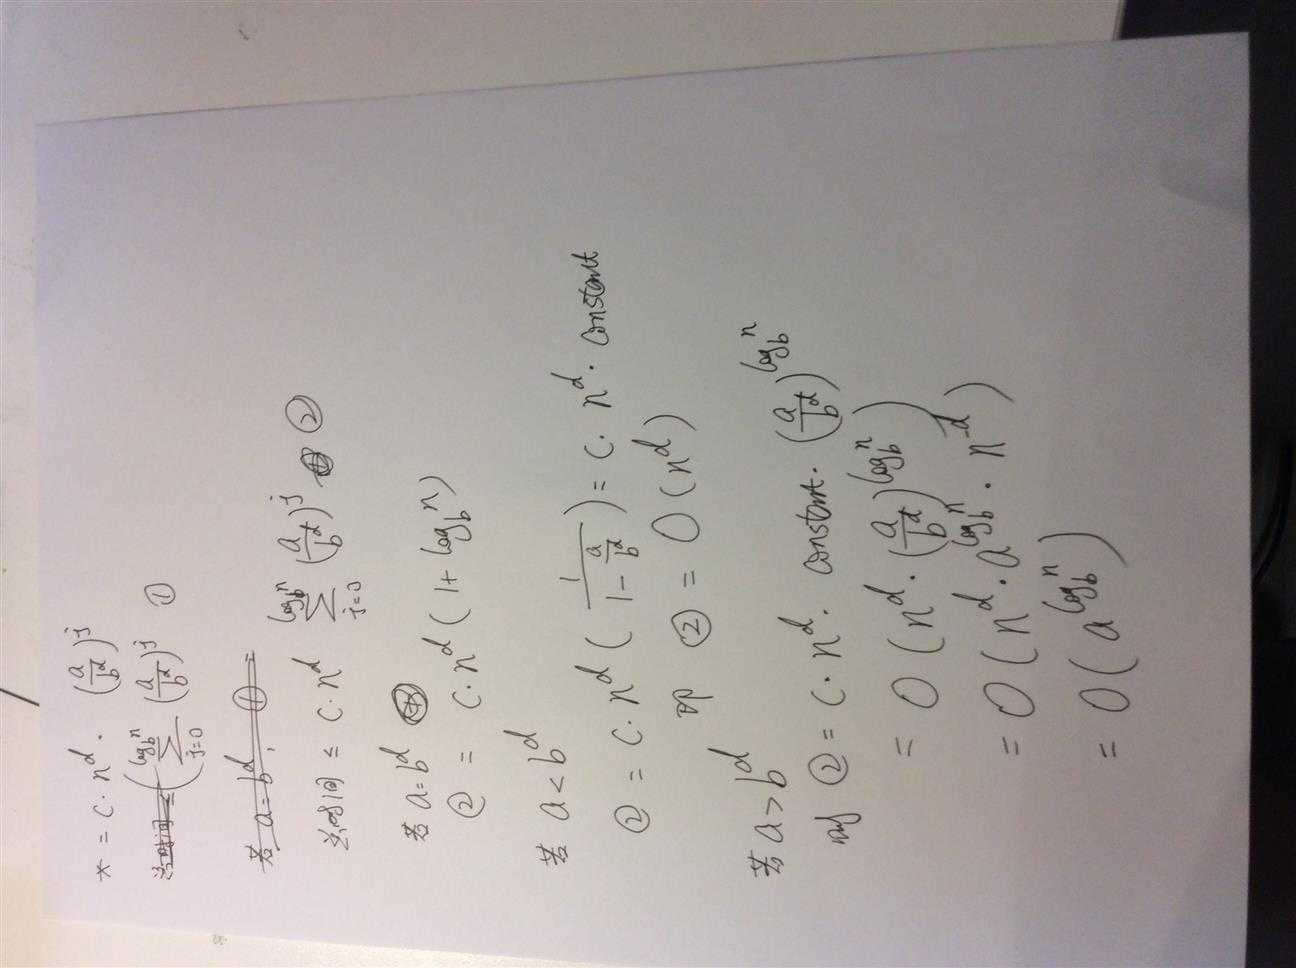 * = c · n^d · (a/b^d)^j
总时间 ≤ (∑_{j=0}^{log_b n} (a/b^d)^j ①
若 a = b^d, ①
总时间 ≤ c · n^d ∑_{j=0}^{log_b n} (a/b^d)^j ②
若 a = b^d
② = c · n^d (1 + log_b n)
若 a < b^d
② = c · n^d (1/(1 - a/b^d)) = c · n^d · constant
即 ② = O(n^d)
若 a > b^d
则 ② = c · n^d · constant · (a/b^d)^{log_b n}
= O(n^d · (a/b^d)^{log_b n})
= O(n^d · a^{log_b n} · n^{-d})
= O(a^{log_b n})